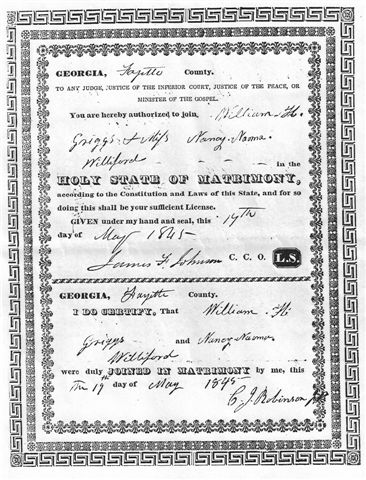 GEORGIA, Fayette County.
TO ANY JUDGE, JUSTICE OF THE INFERIOR COURT, JUSTICE OF THE PEACE, OR
MINISTER OF THE GOSPEL.
You are hereby authorized to join, William H.
Griggs & Miss Nancy Naoma
Williford - - - - in the
HOLY STATE OF MATRIMONY,
according to the Constitution and Laws of this State, and for so
doing this shall be your sufficient License.
GIVEN under my hand and seal, this 17th
day of May 1845
James F. Johnson C. C. O. L.S.
GEORGIA, Fayette County.
I DO CERTIFY, That William H.
Griggs and Nancy Naoma
Williford
were duly JOINED IN MATRIMONY by me, this
19th day of May 1845
C. J. Robinson